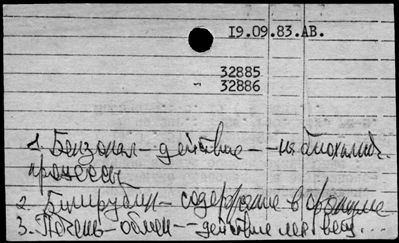 I9.09.83.АВ.
32885
32886
1. Бензонал — действие — на биохимич.
процессы
2. Билирубин — содержание в организме
3. Печень — обмен — действие лек. вещ...